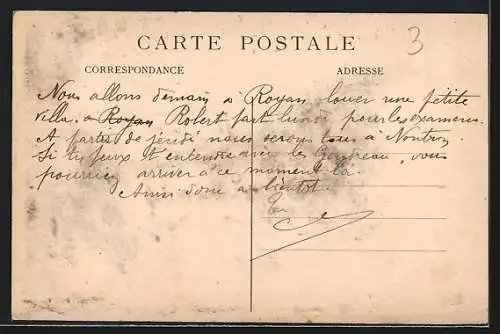 CARTE POSTALE
3
CORRESPONDANCE
ADRESSE
Nous allons demain à Royan louer une petite
villa. a Royan Robert part lundi pour les examens.
A partir de jeudi nous serons tous à
Si tu peux t'entendre avec les vous
pourriez arriver à ce moment là.
Ainsi donc a bientôt.